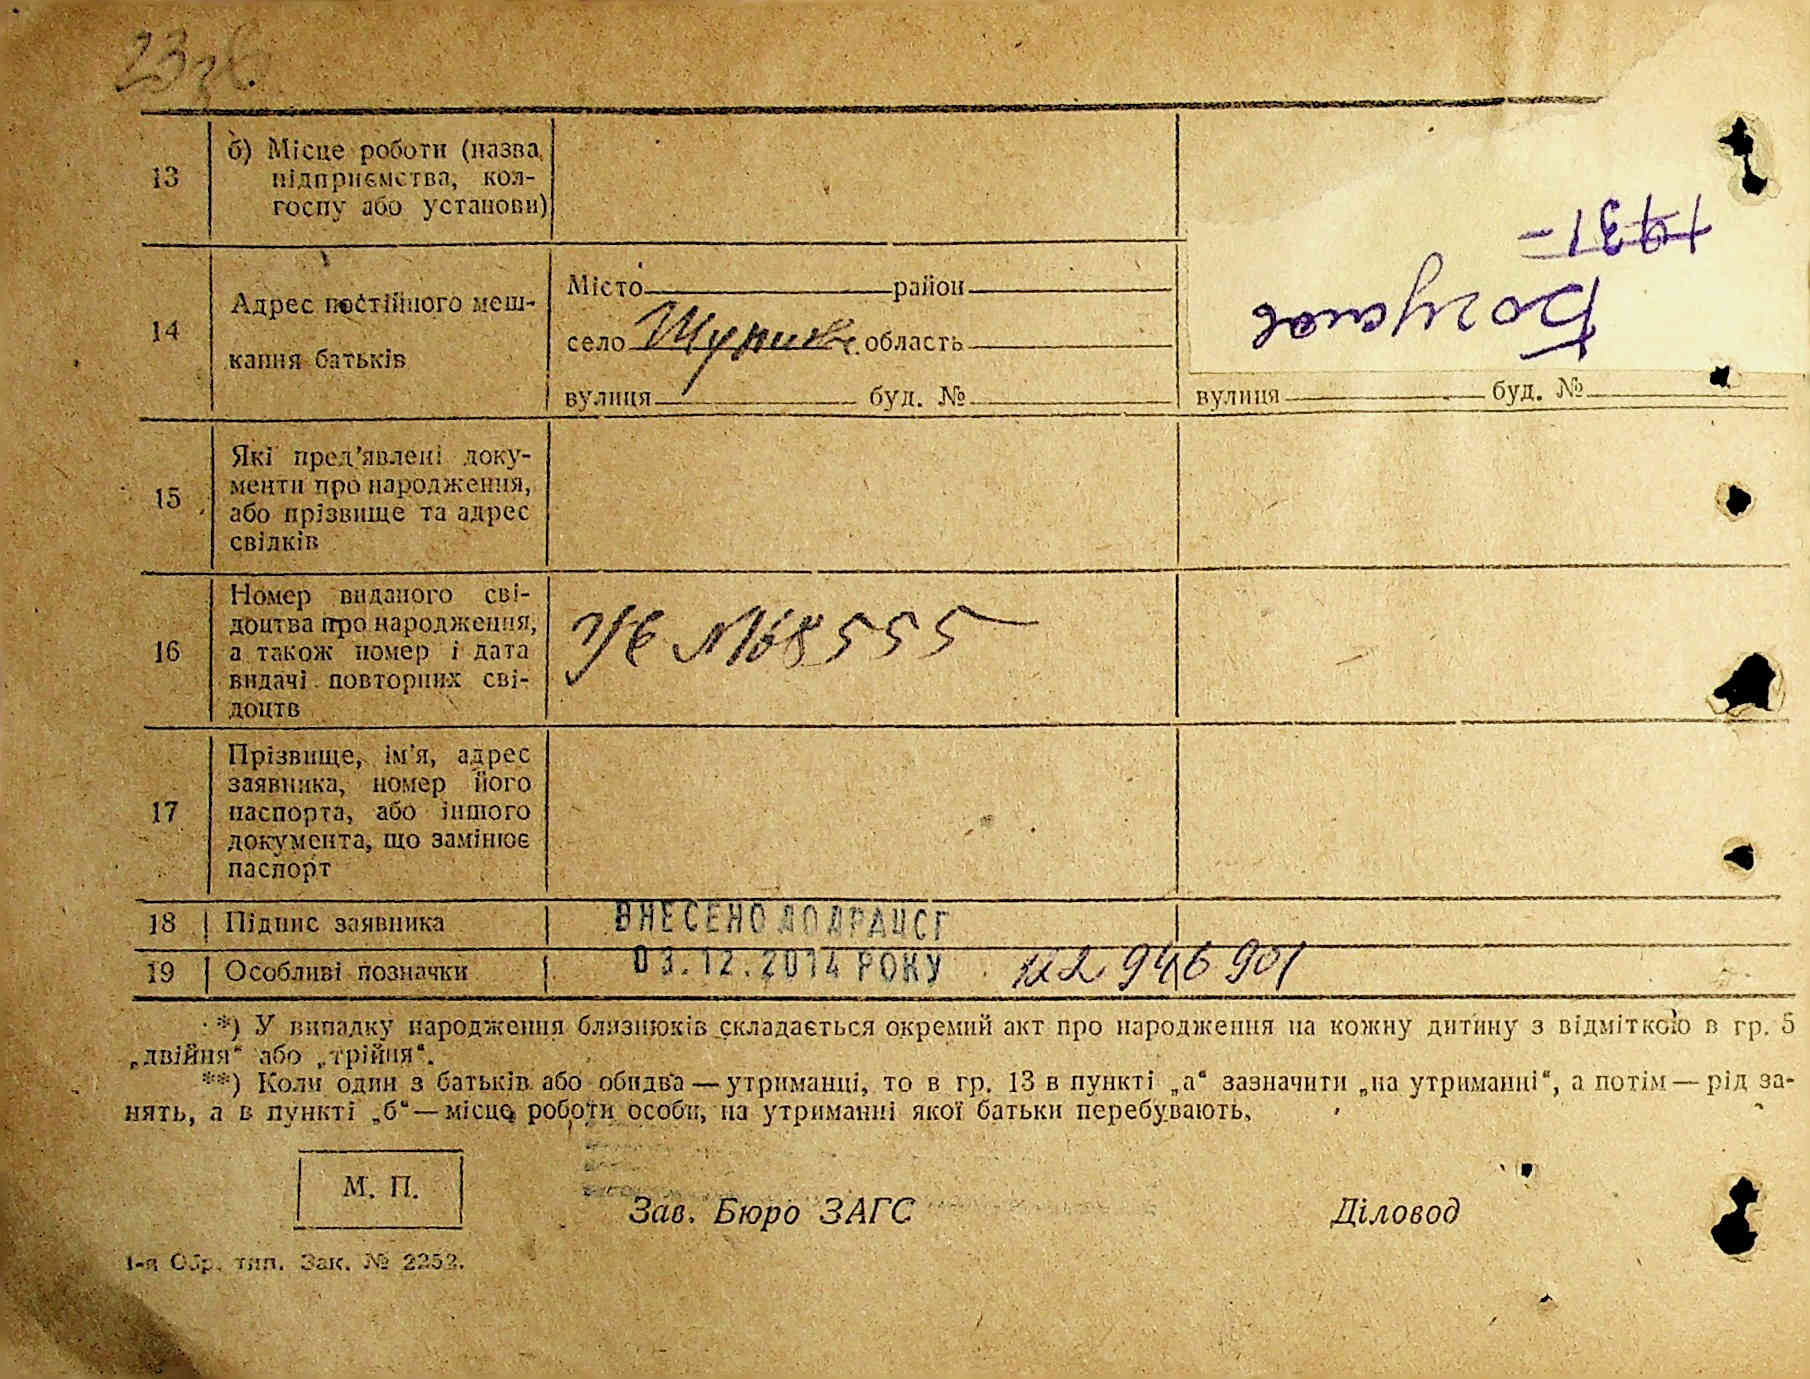 13
б) Місце роботи (назва
підприємства, кол-
госпу або установи)
1931-
Богуслав
14
Адрес постійного меш-
кання батьків
Місто район
село область
вулиця буд. №
вулиця буд. №
15
Які пред'явлені доку-
менти про народження,
або прізвище та адрес
свідків
16
Номер виданого сві-
доцтва про народження,
а також номер і дата
видачі повторних сві-
доцтв
№68555
17
Прізвище, ім'я, адрес
заявника, номер його
паспорта, або іншого
документа, що замінює
паспорт
18 Підпис заявника
ВНЕСЕНО ДО ДРАЦСГ
19 Особливі позначки
03.12.2014 РОКУ
946901
*) У випадку народження близнюків складається окремий акт про народження на кожну дитину з відміткою в гр. 5
„двійня“ або „трійня“.
**) Коли один з батьків або обидва — утриманці, то в гр. 13 в пункті „а“ зазначити „на утриманні“, а потім — рід за-
нять, а в пункті „б“ — місце роботи особи, на утриманні якої батьки перебувають,
М. П.
Зав. Бюро ЗАГС
Діловод
1-я Обр. тип. Зак. № 2252.